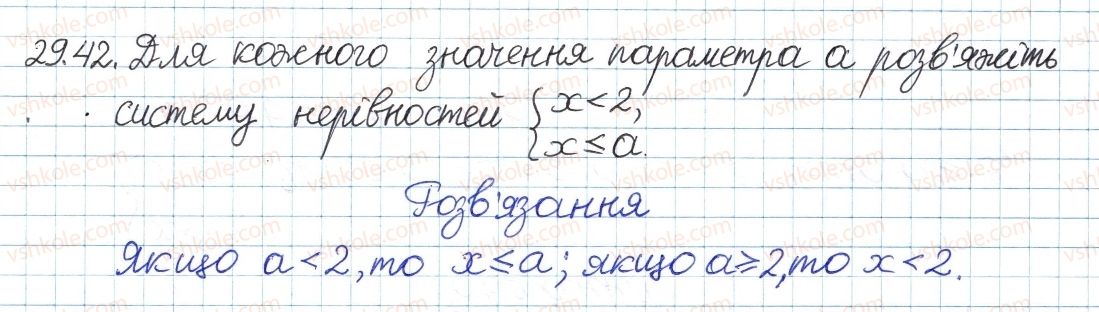 29.42. Для кожного значення параметра a розв'яжіть
систему нерівностей { x < 2,
x ≤ a.
Розв'язання
Якщо a < 2, то x ≤ a; якщо a ≥ 2, то x < 2.